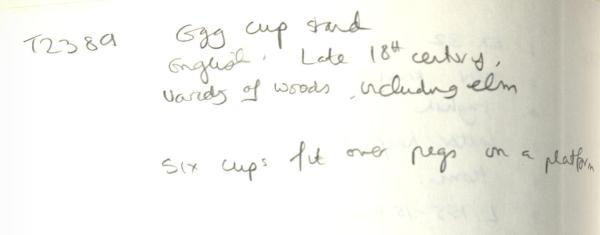 T2389 Egg cup stand
English. Late 18th century,
Variety of woods, including elm
Six cups fit over pegs on a platform